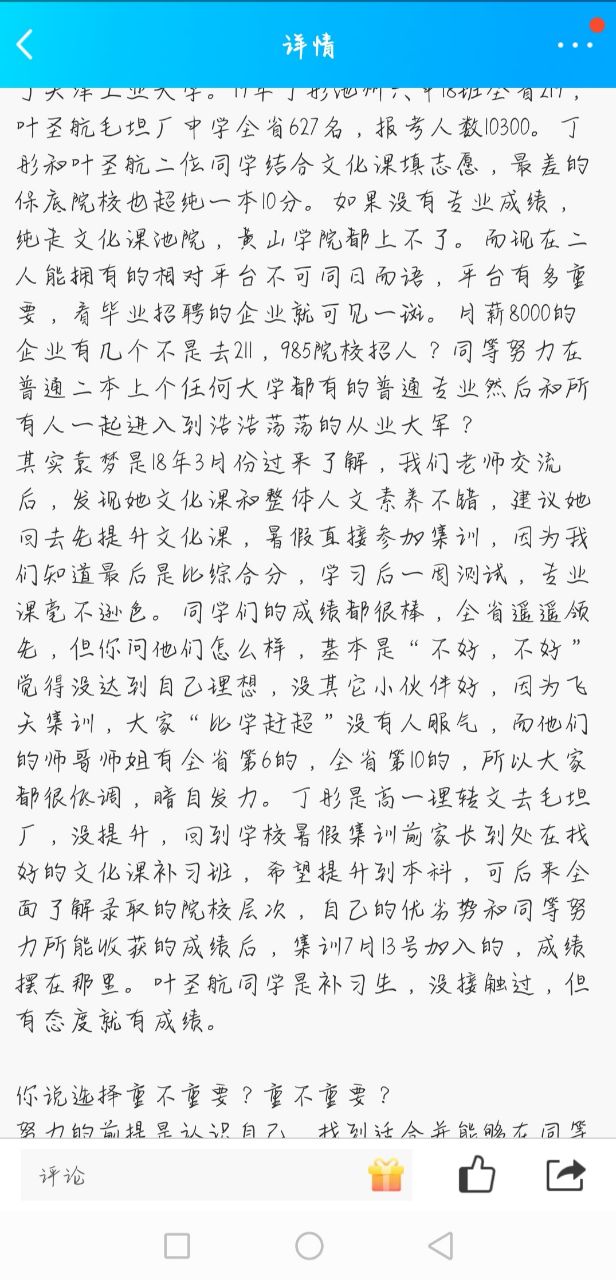 详情
叶圣航毛坦厂中学全省627名，报考人数10300。丁
彤和叶圣航二位同学结合文化课填志愿，最差的
保底院校也超纯一本10分。如果没有专业成绩，
纯走文化课池院，黄山学院都上不了。而现在二
人能拥有的相对平台不可同日而语，平台有多重
要，看毕业招聘的企业就可见一斑。月薪8000的
企业有几个不是去211，985院校招人？同等努力在
普通二本上个任何大学都有的普通专业然后和所
有人一起进入到浩浩荡荡的从业大军？
其实袁梦是18年3月份过来了解，我们老师交流
后，发现她文化课和整体人文素养不错，建议她
回去先提升文化课，暑假直接参加集训，因为我
们知道最后是比综合分，学习后一周测试，专业
课毫不逊色。同学们的成绩都很棒，全省遥遥领
先，但你问他们怎么样，基本是“不好，不好”
觉得没达到自己理想，没其它小伙伴好，因为飞
天集训，大家“比学赶超”没有人服气，而他们
的师哥师姐有全省第6的，全省第10的，所以大家
都很低调，暗自发力。丁彤是高一理转文去毛坦
厂，没提升，回到学校暑假集训前家长到处在找
好的文化课补习班，希望提升到本科，可后来全
面了解录取的院校层次，自己的优劣势和同等努
力所能收获的成绩后，集训7月13号加入的，成绩
摆在那里。叶圣航同学是补习生，没接触过，但
有态度就有成绩。
你说选择重不重要？重不重要？
努力的前提是认识自己，找到适合并能够在同等
评论